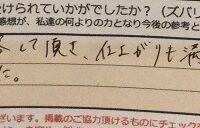 けられていかがでしたか？（ズバリ
感想が、私達の何よりの力となり今後の参考と
して頂き、仕上がりも満
た。
ざいます。掲載のご協力頂けるものにチェックを